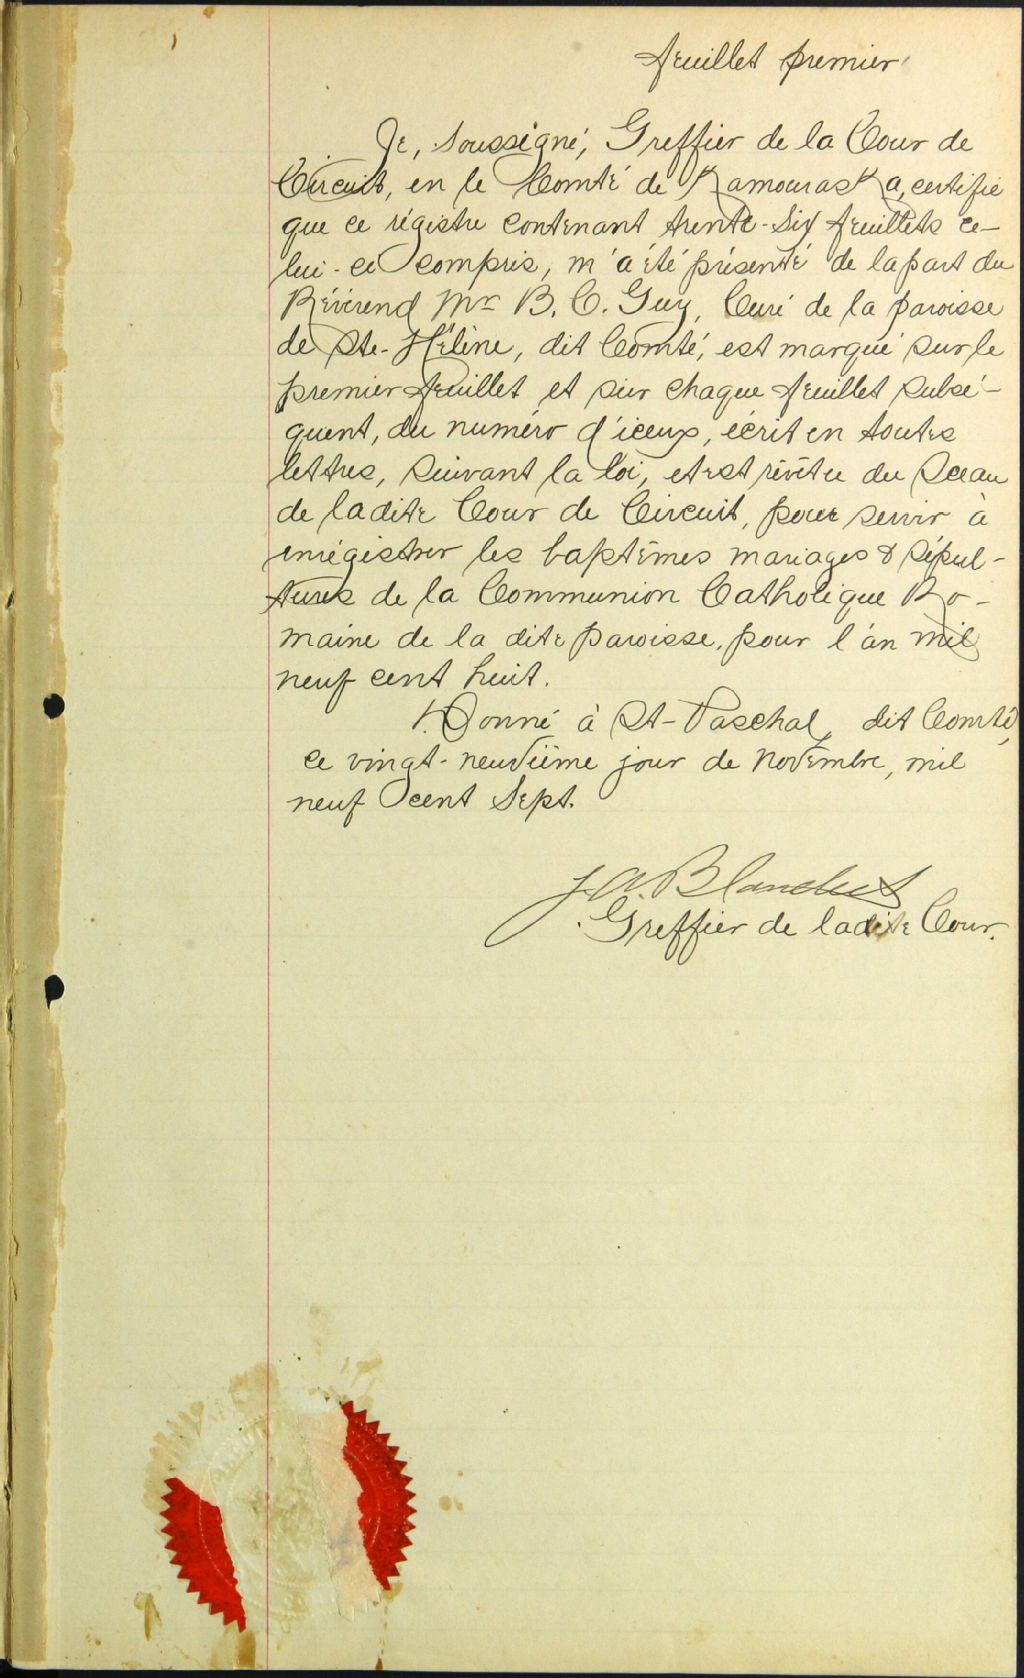 feuillet premier
Je, soussigné, Greffier de la Cour de
Circuit, en le Comté de Kamouraska, certifie
que ce régistre contenant trente-six feuillets ce-
lui-ci compris, m'a été présenté de la part du
Révérend Mr B. C. Guy, Curé de la paroisse
de Ste-Hélène, dit Comté, est marqué sur le
premier feuillet et sur chaque feuillet subsé-
quent, du numéro d'iceux, écrit en toutes
lettres, suivant la loi, et est révêtu du Sceau
de ladite Cour de Circuit, pour servir à
enrégistrer les baptêmes mariages & sépul-
tures de la Communion Catholique Ro-
maine de la dite paroisse, pour l'an mil
neuf cent huit.
Donné à St-Paschal, dit Comté,
ce vingt-neuvième jour de novembre, mil
neuf cent sept.
J. A. Blanchet
Greffier de ladite Cour.